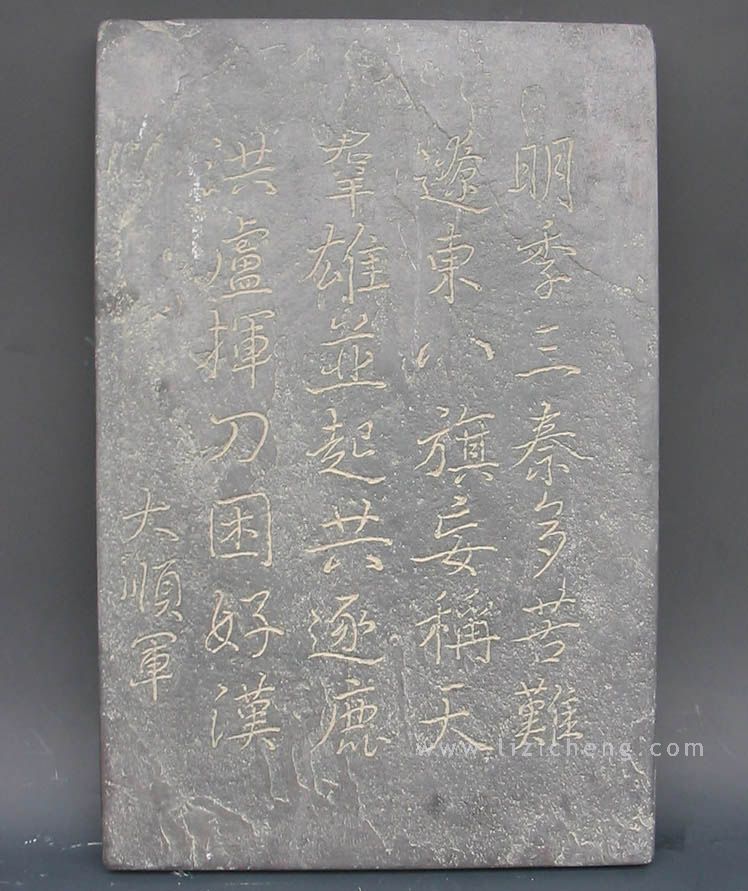 明季三秦多苦難
遼東八旗妄稱天
羣雄並起共逐鹿
洪盧揮刀困好漢
大順軍
www.lizicheng.com